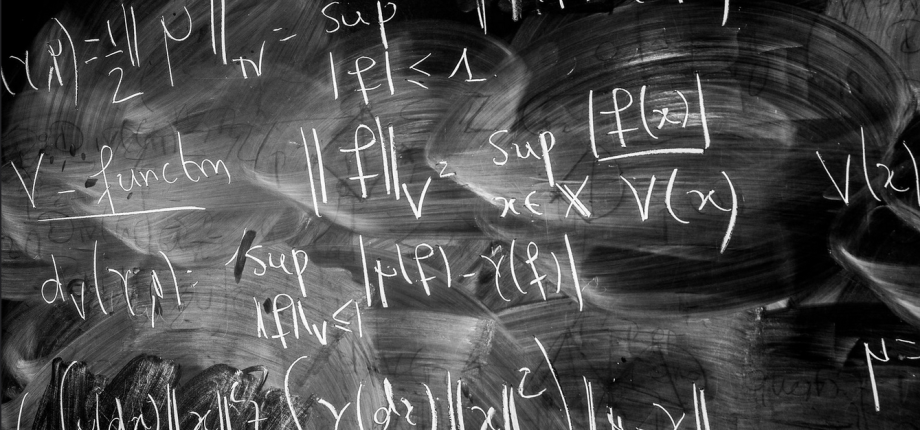 (γ,μ) = 1/2 || μ ||_TV = sup
|f| ≤ 1
V - function ||f||_V = sup_{x∈X} |f(x)| / V(x) V(x)
d_V(γ,μ) = sup_{||f||_V ≤ 1} |μ(f) - γ(f)|
μ =
γ(dx) ||x||²